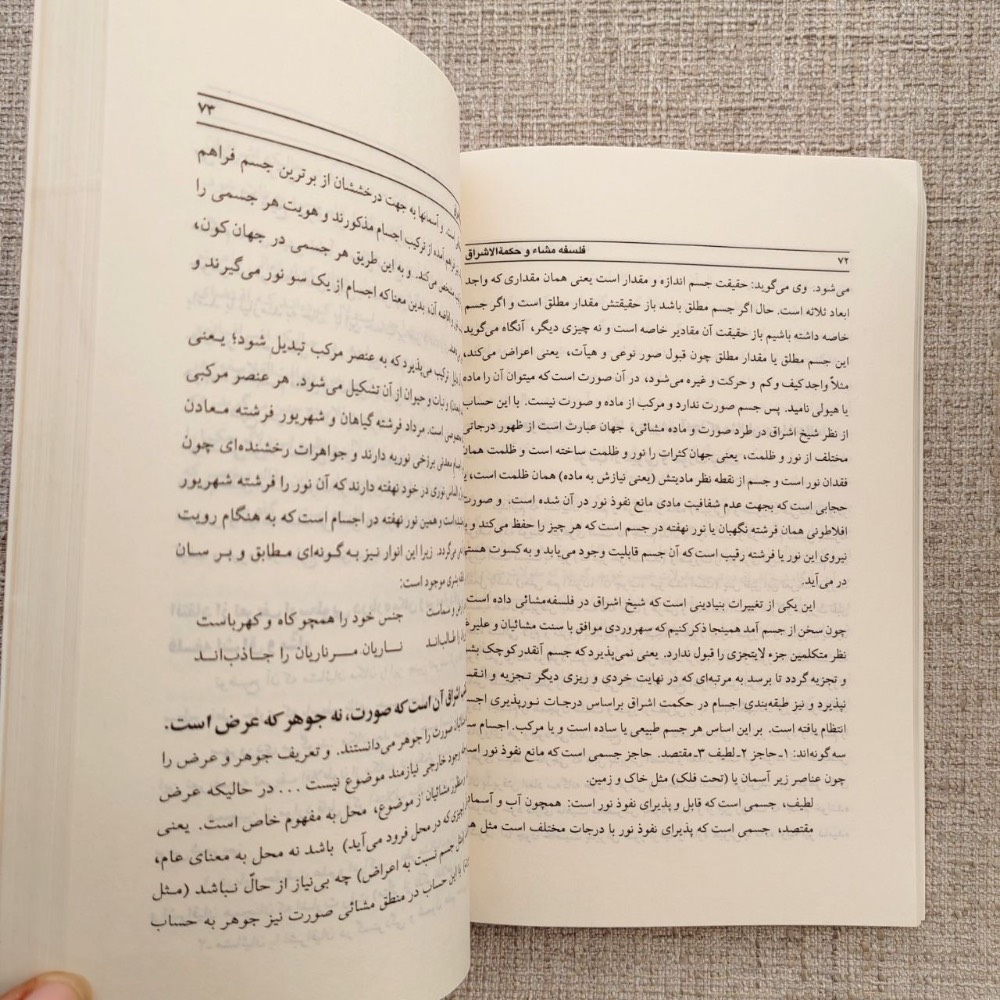 ۷۲
فلسفه مشاء و حکمةالاشراق
می‌شود. وی می‌گوید: حقیقت جسم اندازه و مقدار است یعنی همان مقداری که واجد
ابعاد ثلاثه است. حال اگر جسم مطلق باشد باز حقیقتش مقدار مطلق است و اگر جسم
خاصه داشته باشیم باز حقیقت آن مقادیر خاصه است و نه چیزی دیگر، آنگاه می‌گوید
این جسم مطلق یا مقدار مطلق چون قبول صور نوعی و هیآت، یعنی اعراض می‌کند،
مثلاً واجد کیف و کم و حرکت و غیره می‌شود، در آن صورت است که میتوان آن را ماده
یا هیولی نامید. پس جسم صورت ندارد و مرکب از ماده و صورت نیست. با این حساب
از نظر شیخ اشراق در طرد صورت و ماده مشائی، جهان عبارت است از ظهور درجاتی
مختلف از نور و ظلمت، یعنی جهان کثرات را نور و ظلمت ساخته است و ظلمت همان
فقدان نور است و جسم از نقطه نظر مادیتش (یعنی نیازش به ماده) همان ظلمت است،
حجابی است که بجهت عدم شفافیت مادی مانع نفوذ نور در آن شده است. و صورت
افلاطونی همان فرشته نگهبان یا نور نهفته در جسم است که هر چیز را حفظ می‌کند و
نیروی این نور یا فرشته رقیب است که آن جسم قابلیت وجود می‌یابد و به کسوت
در می‌آید.
این یکی از تغییرات بنیادینی است که شیخ اشراق در فلسفه‌مشائی داده است
چون سخن از جسم آمد همینجا ذکر کنیم که سهروردی موافق با سنت مشائیان و
نظر متکلمین جزء لایتجزی را قبول ندارد. یعنی نمی‌پذیرد که جسم آنقدر کوچک
و تجزیه گردد تا برسد به مرتبه‌ای که در نهایت خردی و ریزی دیگر تجزیه و
نپذیرد و نیز طبقه‌بندی اجسام در حکمت اشراق براساس درجات نورپذیری
انتظام یافته است. بر این اساس هر جسم طبیعی یا ساده است و یا مرکب. اجسام
سه گونه‌اند: ۱ـ حاجز ۲ـ لطیف ۳ـ مقتصد. حاجز جسمی است که مانع نفوذ نور
چون عناصر زیر آسمان یا (تحت فلک) مثل خاک و زمین.
لطیف، جسمی است که قابل و پذیرای نفوذ نور است: همچون آب و
مقتصد، جسمی است که پذیرای نفوذ نور با درجات مختلف است مثل
۷۳
است. و آسمانها به جهت درخششان از برترین جسم فراهم
آمده از ترکیب اجسام مذکورند و هویت هر جسمی را
مشخص می‌کند. و به این طریق هر جسمی در جهان کون،
آن، بدین معنا که اجسام از یک سو نور می‌گیرند و
ترکیب می‌پذیرد که به عنصر مرکب تبدیل شود؛ یعنی
و نبات و حیوان از آن تشکیل می‌شود. هر عنصر مرکبی
است. مرداد فرشته گیاهان و شهریور فرشته معادن
معدنی برزخی نوریه دارند و جواهرات رخشنده‌ای چون
نوری در خود نهفته دارند که آن نور را فرشته شهریور
است و همین نور نهفته در اجسام است که به هنگام رویت
می‌گردد. زیرا این انوار نیز به گونه‌ای مطابق و بر سان
موجود است:
جنس خود را همچو کاه و کهرباست
ناریان مرناریان را جاذب‌اند
اشراق آن است که صورت، نه جوهر که عرض است.
صورت را جوهر می‌دانستند. و تعریف جوهر و عرض را
وجود خارجی نیازمند موضوع نیست ... در حالیکه عرض
مشائیان از موضوع، محل به مفهوم خاص است. یعنی
که در محل فرود می‌آید) باشد نه محل به معنای عام،
جسم نسبت به اعراض) چه بی‌نیاز از حالّ نباشد (مثل
با این حساب در منطق مشائی صورت نیز جوهر به حساب